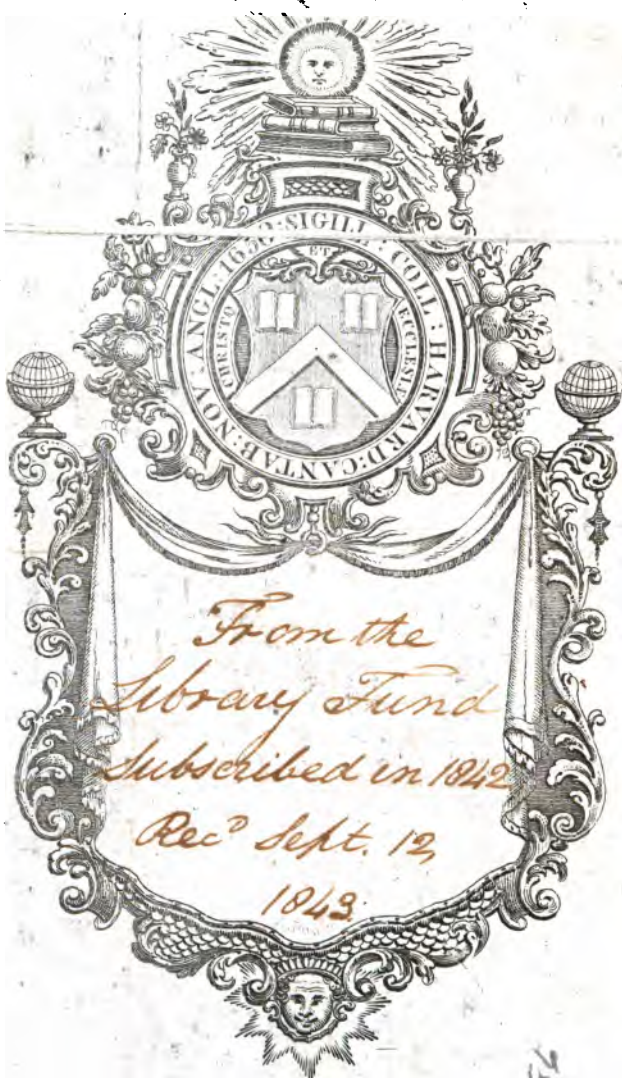 SIGILL : COLL : HARVARD : CANTAB : NOV : ANGL : 1650
CHRISTO ET ECCLESIÆ
From the
Library Fund
Subscribed in 1842
Rec^d Sept. 12,
1843.